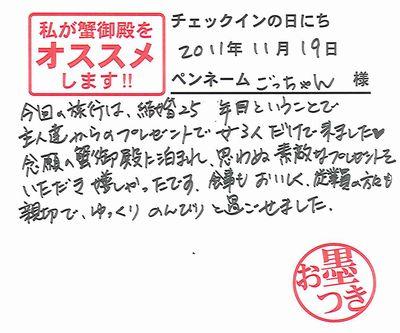 私が蟹御殿を
オススメ
します!!
チェックインの日にち
2011年 11月 19日
ペンネーム ごっちゃん 様
今回の旅行は、結婚25年目ということで
主人達からのプレゼントで女3人だけで来ました♥
念願の蟹御殿に泊まれ、思わぬ素敵なプレゼントを
いただき嬉しかったです。食事もおいしく、従業員の方も
親切で、ゆっくりのんびりと過ごせました。
お墨つき